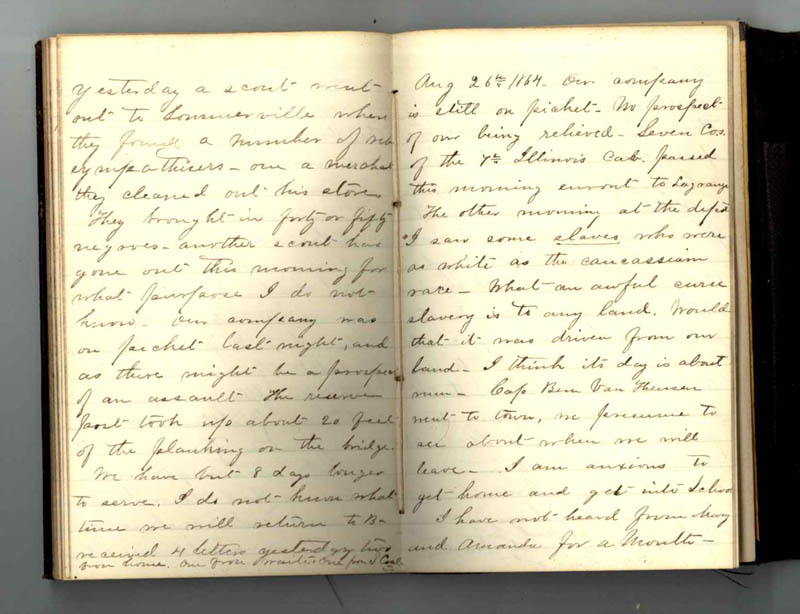 Yesterday a scout went
out to Sommerville where
they found a number of reb
sympathisers - one a merchant
they cleaned out his store
They brought in forty or fifty
negroes - another scout has
gone out this morning for
what purpose I do not
know - Our company was
on picket last night, and
as there might be a prospect
of an assault The reserve
post took up about 20 feet
of the planking on the bridge.
We have but 8 days longer
to serve. I do not know what
time we will return to B-
received 4 letters yesterday two
from home. one from one from J
Aug 26th 1864 - Our company
is still on picket - No prospect
of our being relieved - Seven Cos.
of the 7th Illinois Cab. passed
this morning enrout to Lagrange
The other morning at the depot
I saw some slaves who were
as white as the caucassiam
race - What an awful curse
slavery is to any land. Would
that it was driven from our
land - I think its day is about
run - Cap Ben Van
went to town, we presume to
see about when we will
leave - I am anxious to
get home and get into School
I have not heard from Mary
and Amanda for a Month -